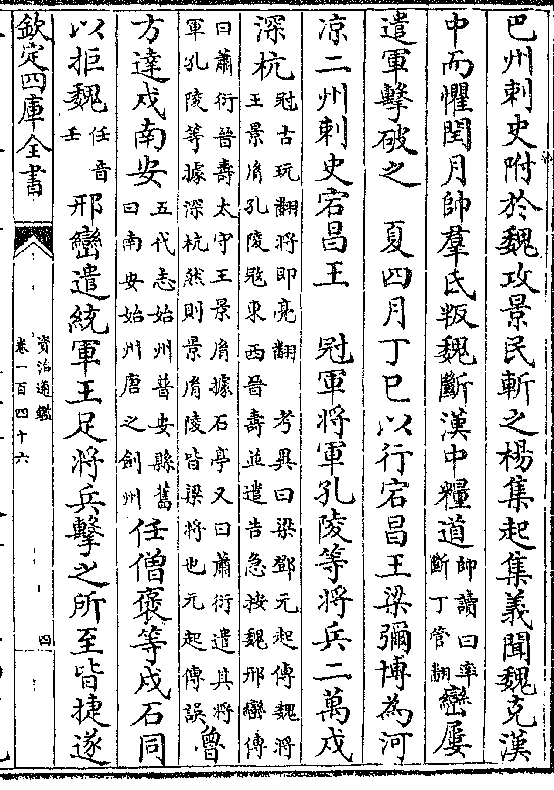 巴州刺史附於魏攻景民斬之楊集起集義聞魏克漢
中而懼閏月帥羣氐叛魏斷漢中糧道
帥讀曰率
斷丁管翻
巒屢
遣軍擊破之　夏四月丁巳以行宕昌王梁彌博為河
涼二州刺史宕昌王　冠軍將軍孔陵等將兵二萬戍
深杭
冠古玩翻將即亮翻　考異曰梁鄧元起傳魏將
王景胤孔陵冦東西晉壽並遣告急按魏邢巒傳
曰蕭衍晉壽太守王景胤據石亭又曰蕭衍遣其將
軍孔陵等據深杭然則景胤陵皆梁將也元起傳誤
魯
方達戍南安
五代志始州普安縣舊
曰南安始州唐之劍州
任僧褒等戍石同
以拒魏
任音
壬
邢巒遣統軍王足將兵擊之所至皆捷遂
欽定四庫全書
資治通鑑
卷一百四十六
四